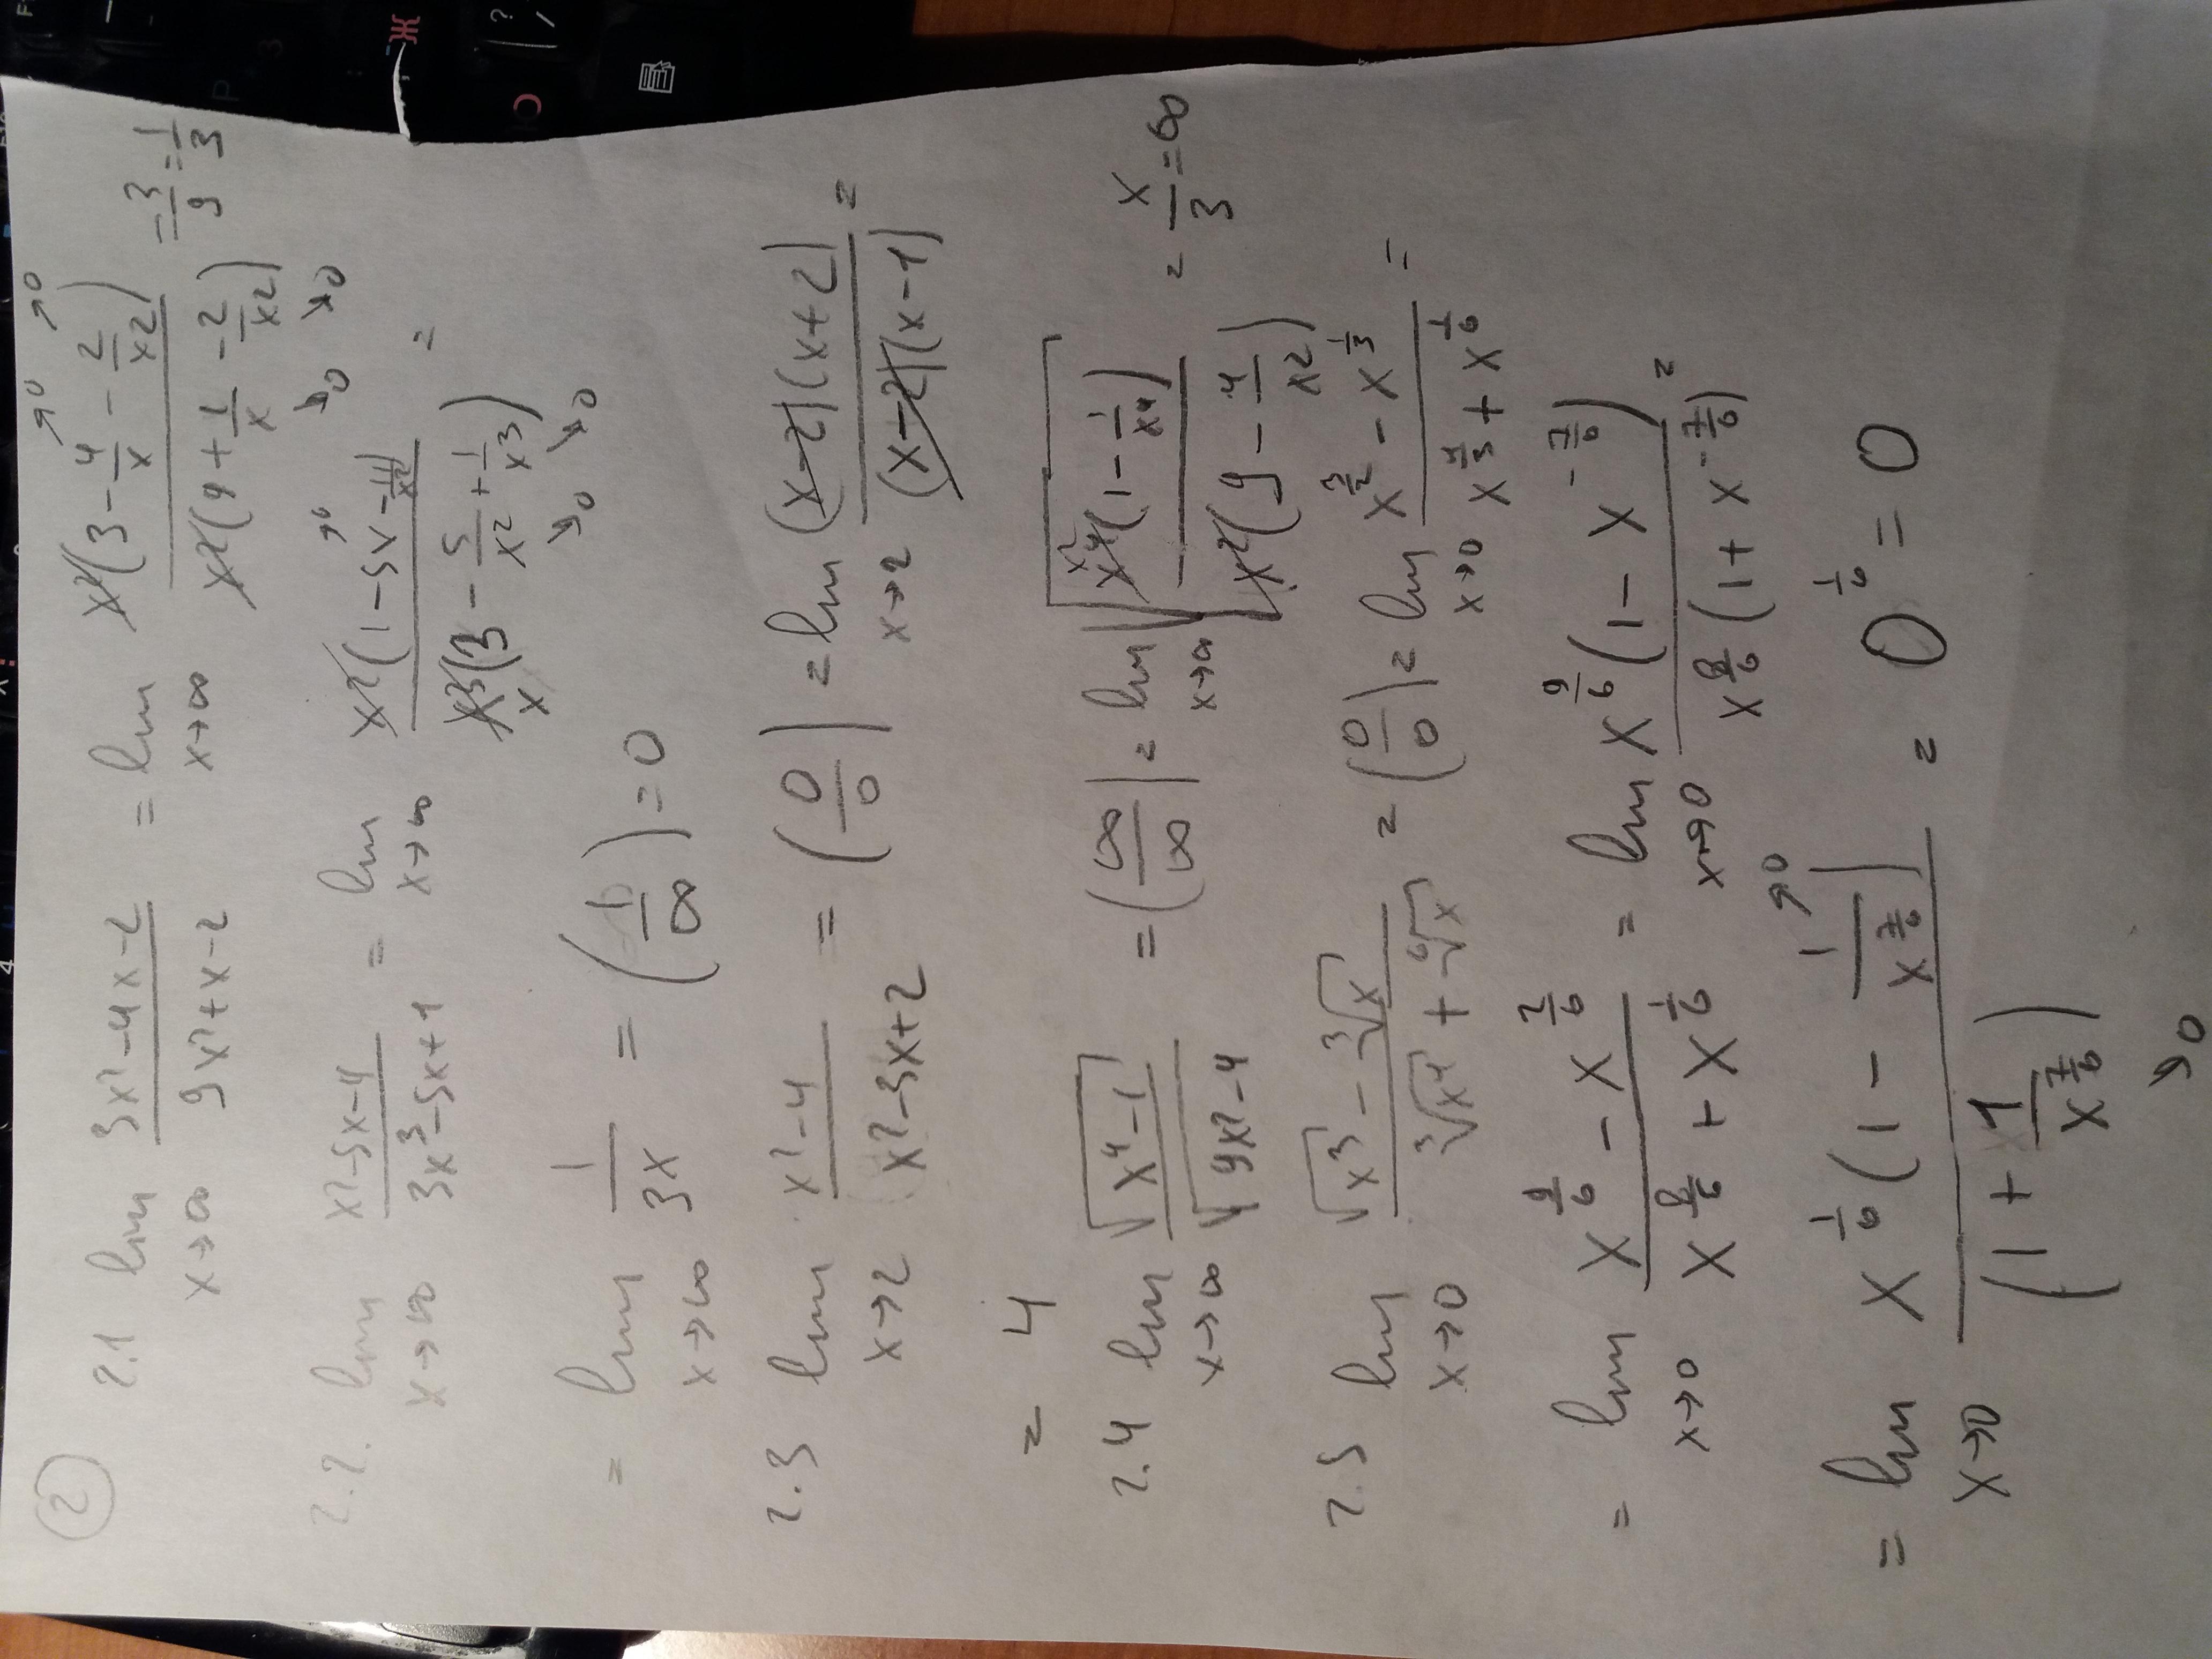 ②
2.1 lim x→∞ (3x²-4x-2)/(9x²+x-2) = lim x→∞ x²(3 - 4/x - 2/x²)/x²(9 + 1/x - 2/x²) = 3/9 = 1/3
→0 →0
→0 →0
2.2. lim x→∞ (x²-5x-4)/(3x³-5x+1) = lim x→∞ x²(1-5x-4/x²)/x³(3 - 5/x² + 1/x³) =
→0
x →0 →0
= lim x→∞ 1/(3x) = (1/∞) = 0
2.3 lim x→2 (x²-4)/(x²-3x+2) = (0/0) = lim x→2 (x-2)(x+2)/(x-2)(x-1) =
= 4
2.4 lim x→∞ √(x⁴-1)/√(9x²-4) = (∞/∞) = lim x→∞ √(x⁴(1-1/x⁴)/x²(9-4/x²)) = = x/3 = ∞
x²
2.5 lim x→0 (√x³ - ³√x)/(³√x⁴ + ⁶√x) = (0/0) = lim x→0 (x^(3/2) - x^(1/3))/(x^(4/3) + x^(1/6)) =
= lim x→0 (x^(9/6) - x^(2/6))/(x^(8/6) + x^(1/6)) = lim x→0 x^(9/6)(1 - x^(-7/6))/x^(8/6)(1 + x^(-7/6)) =
= lim x→0 x^(1/6)(1 - 1/x^(7/6))/(1 + 1/x^(7/6)) = 0^(1/6) = 0
→0
→0
Ж
?